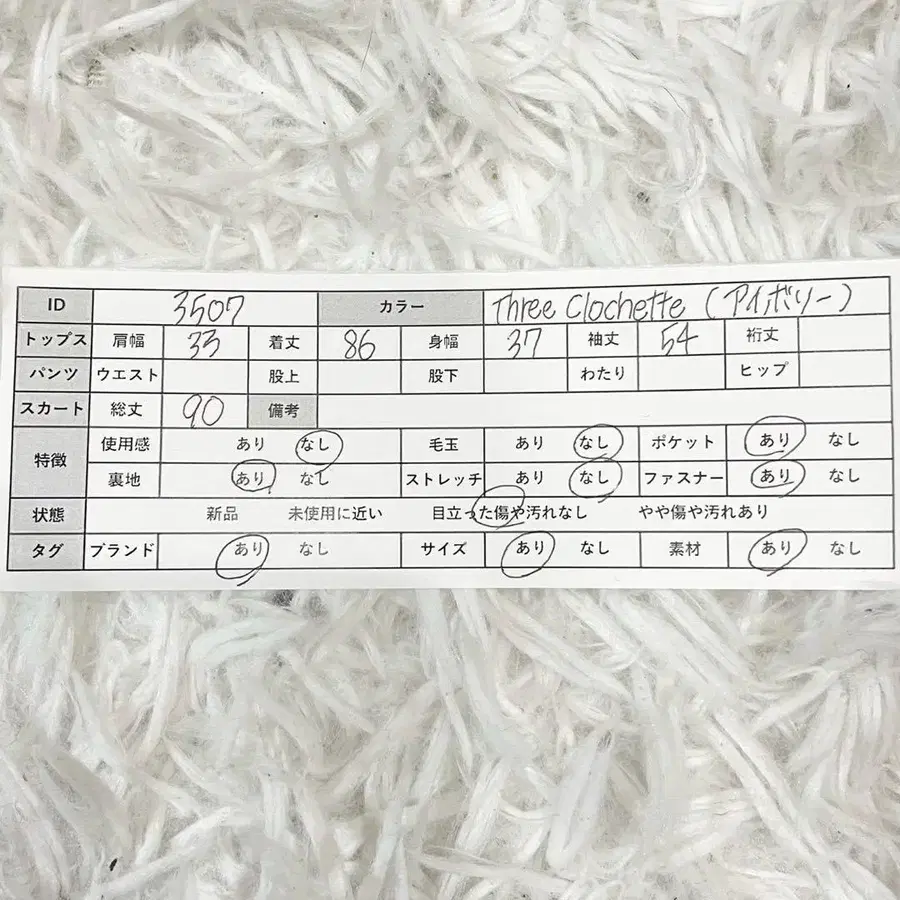 ID 3507 カラー Three Clochette (アイボリー)
トップス 肩幅 33 着丈 86 身幅 37 袖丈 54 裄丈
パンツ ウエスト 股上 股下 わたり ヒップ
スカート 総丈 90 備考
特徴 使用感 あり なし 毛玉 あり なし ポケット あり なし
裏地 あり なし ストレッチ あり なし ファスナー あり なし
状態 新品 未使用に近い 目立った傷や汚れなし やや傷や汚れあり
タグ ブランド あり なし サイズ あり なし 素材 あり なし